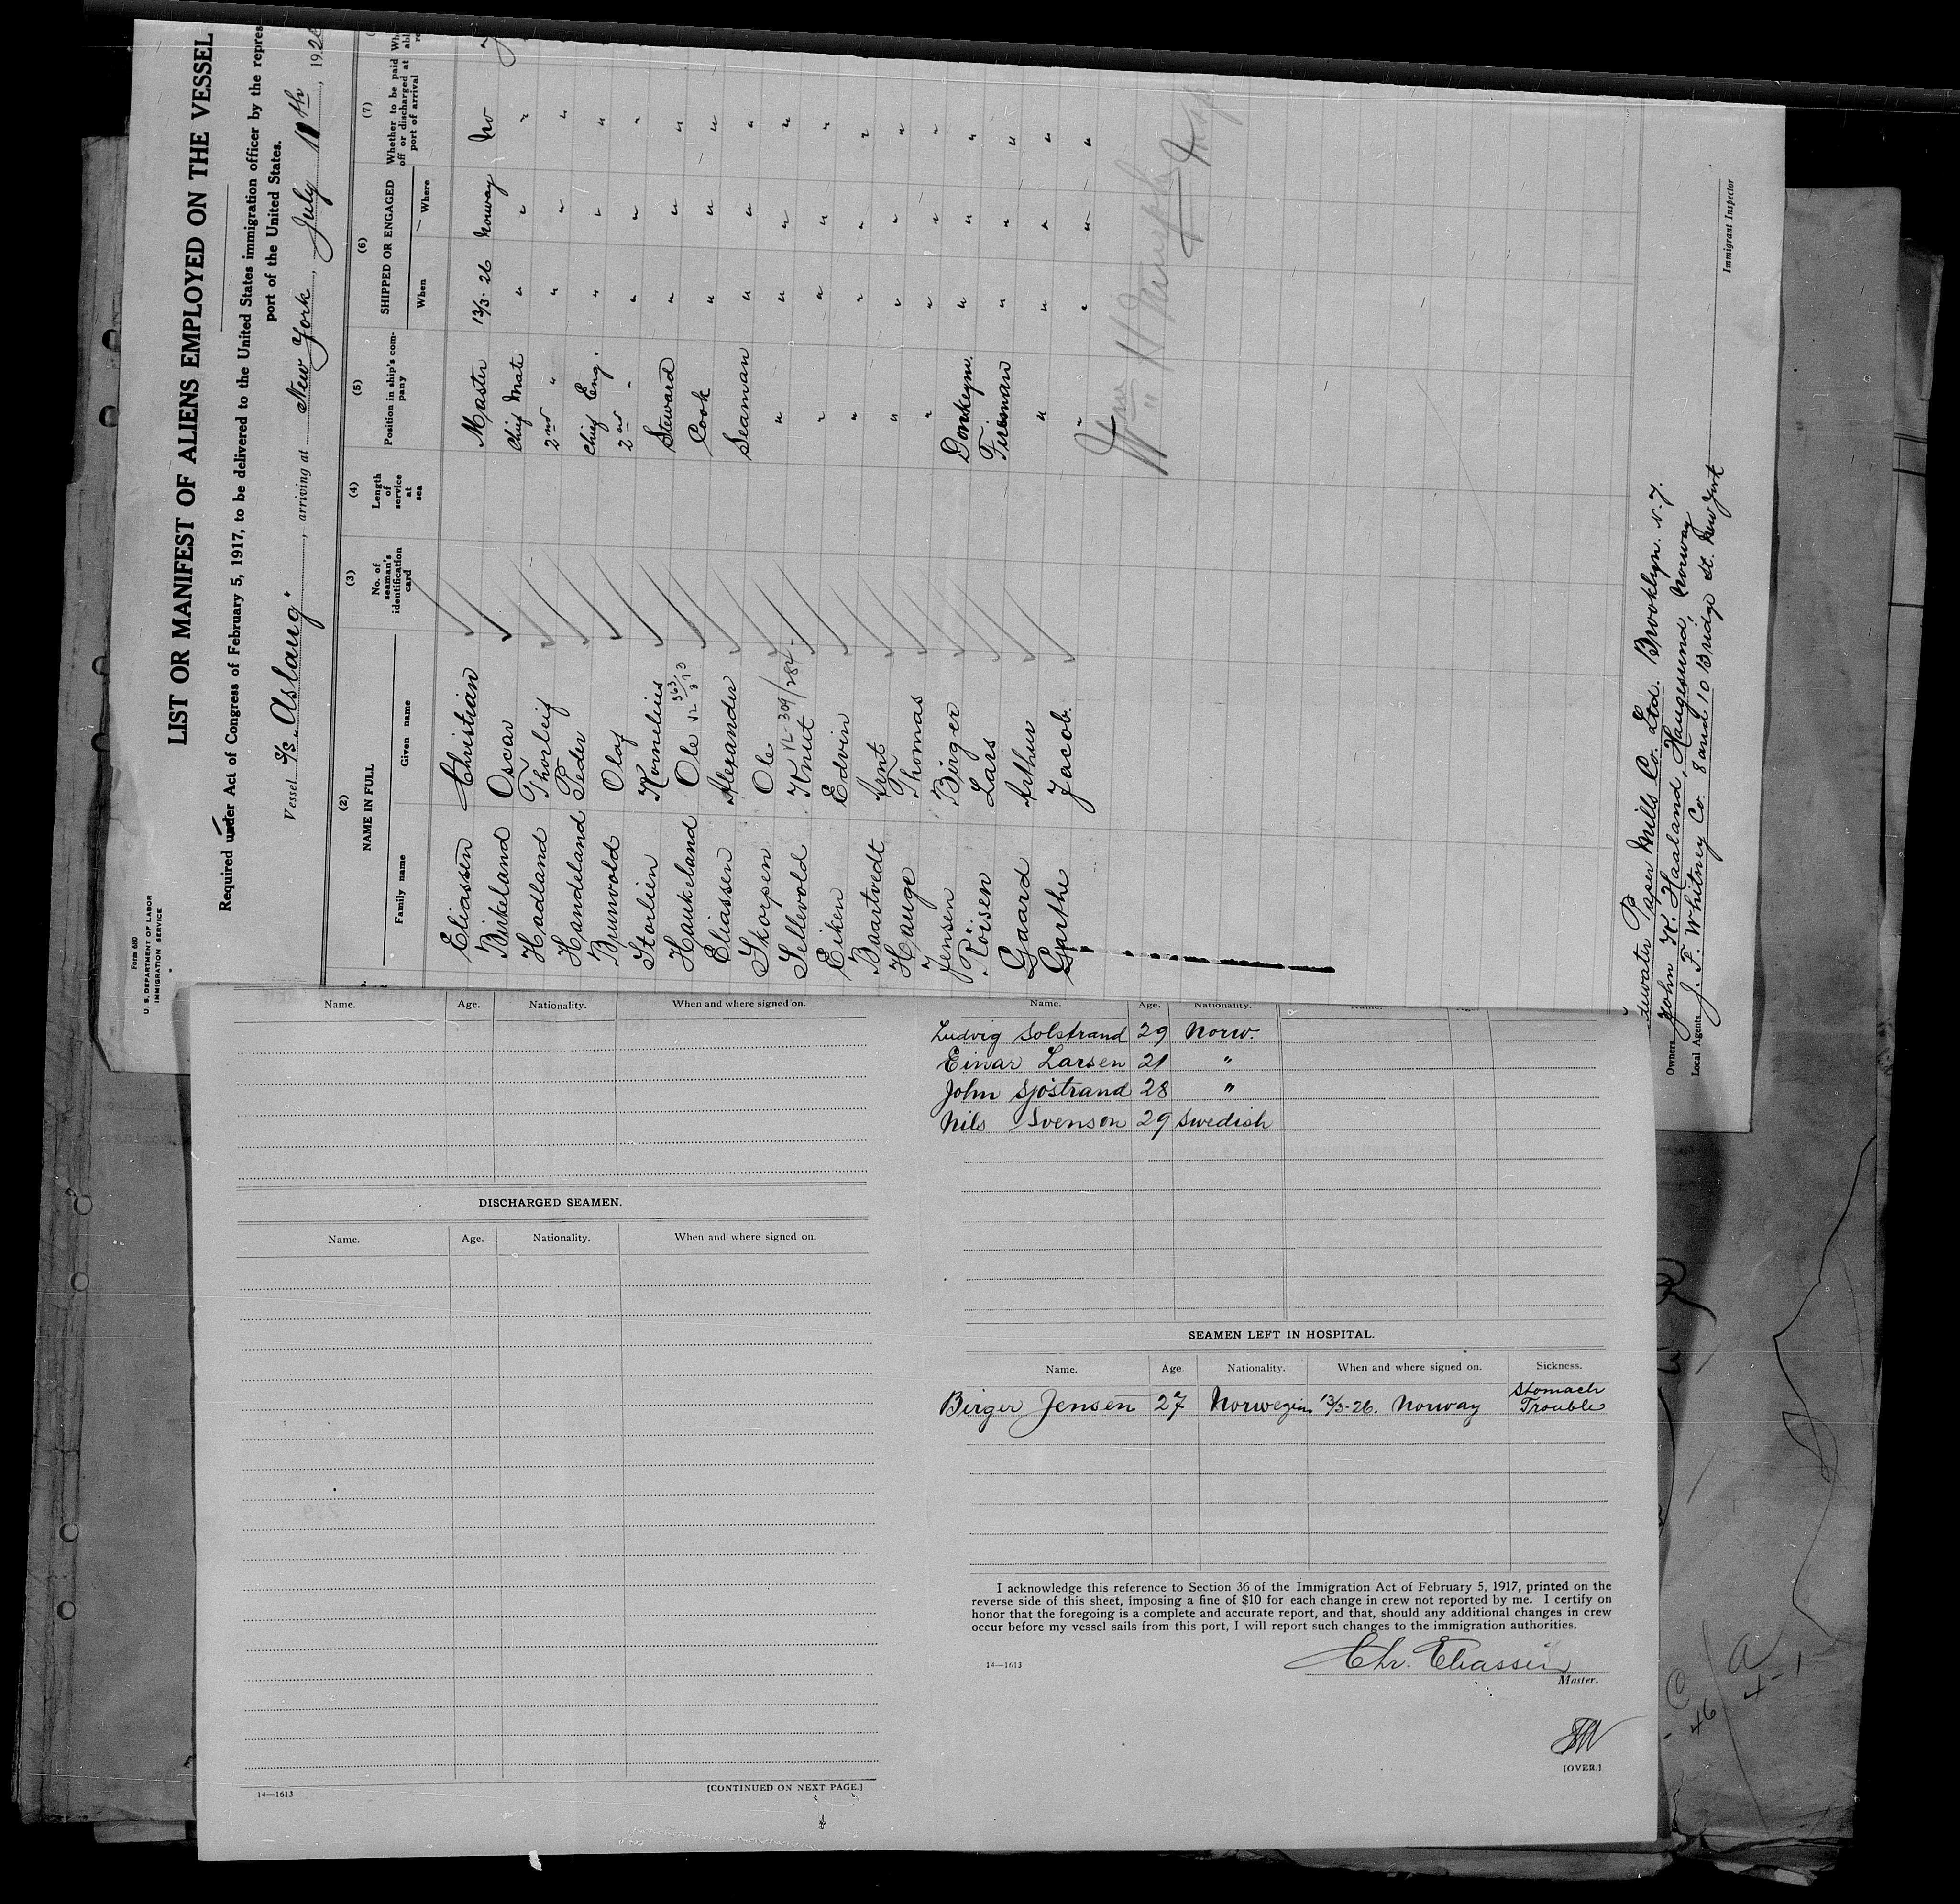 Form 680
U. S. DEPARTMENT OF LABOR
IMMIGRATION SERVICE
LIST OR MANIFEST OF ALIENS EMPLOYED ON THE VESSEL
Required under Act of Congress of February 5, 1917, to be delivered to the United States immigration officer by the repres
port of the United States.
Vessel S/S "Aslaug", arriving at New York, July 11th, 192
(2) (3) (4) (5) (6) (7)
NAME IN FULL No. of seaman's identification card Length of service at sea Position in ship's company SHIPPED OR ENGAGED Whether to be paid off or discharged at port of arrival
Family name Given name When Where
Eliassen Christian Master 13/3-26 Norway No
Birkeland Oscar Chief Mate " " "
Hadland Thorleif 2nd " " " "
Handeland Peder Chief Eng. " " "
Brunvold Olaf 2nd " " " "
Storlien Kornelius Steward " " "
Haukeland Ole Cook " " "
Eliassen Alexander Seaman " " "
Skorpen Ole " " " "
Sellevold Knut " " " "
Eiken Edvin " " " "
Baartvedt Arnt " " " "
Hauge Thomas " " " "
Jensen Birger Donkeym. " " "
Röisen Lars Fireman " " "
Gaard Arthur " " " "
Garthe Jacob. " " " "
Wm H Murphy Insp
tewater Paper Mills Co. Ltd. Brooklyn. N.Y.
Owners John K. Haaland, Haugesund, Norway
Local Agents J. F. Whitney Co. 8 and 10 Bridge St. New York
Immigrant Inspector
Name. Age. Nationality. When and where signed on.
DISCHARGED SEAMEN.
Name. Age. Nationality. When and where signed on.
14—1613
[CONTINUED ON NEXT PAGE.]
Name. Age. Nationality. Name. Age.
Ludvig Solstrand 29 Norw.
Einar Larsen 21 "
John Sjöstrand 28 "
Nils Svenson 29 Swedish
SEAMEN LEFT IN HOSPITAL.
Name. Age Nationality. When and where signed on. Sickness.
Birger Jensen 27 Norwegian 13/3-26. Norway Stomach Trouble
I acknowledge this reference to Section 36 of the Immigration Act of February 5, 1917, printed on the
reverse side of this sheet, imposing a fine of $10 for each change in crew not reported by me. I certify on
honor that the foregoing is a complete and accurate report, and that, should any additional changes in crew
occur before my vessel sails from this port, I will report such changes to the immigration authorities.
14—1613
Chr. Eliassen
Master.
[OVER.]